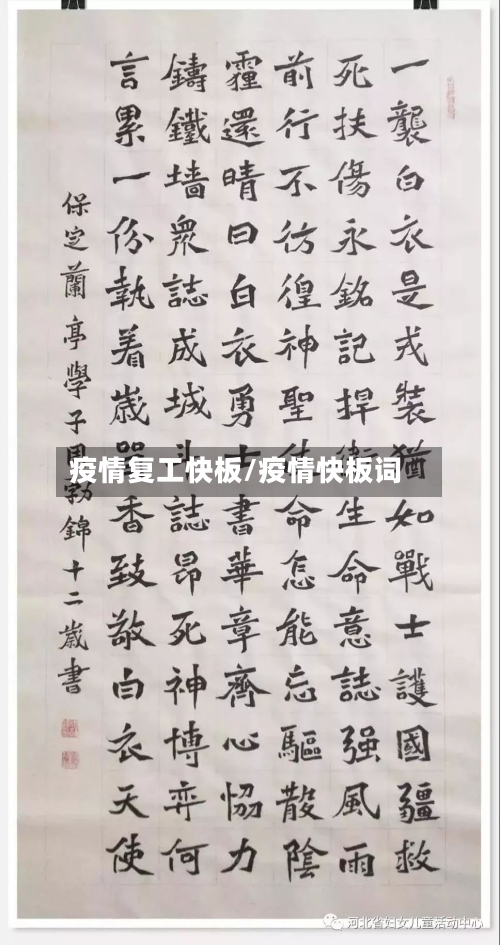 一襲白衣是戎裝猶如戰士護國疆救
死扶傷永銘記捍衛生命意誌强風雨
前行不彷徨神聖使命怎能忘驅散陰
霾還晴日白衣勇士書華章齊心恊力
鑄鐵墙衆誌成城斗誌昂死神博弈何
言累一份執着嵗香致敬白衣天使
保定蘭亭學子錦十二嵗書
疫情复工快板/疫情快板词
河北省妇女儿童活动中心